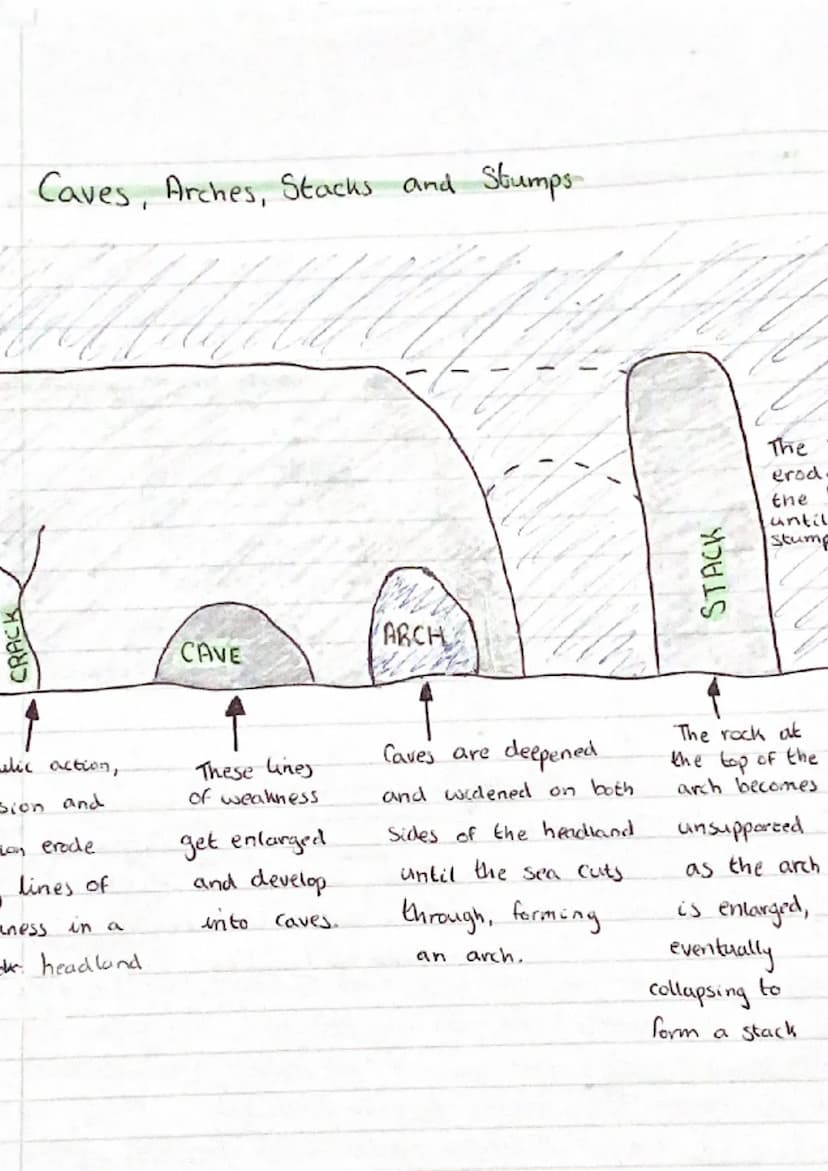 Caves, Arches, Stacks and Stumps
The
the
until
STACK
CRACK
CAVE
ARCH
action,
and
erode
lines of
in a
headland
These lines
of weakness
get enlarged
and develop
into caves.
Caves are deepened
and widened on both
sides of the headland
until the sea cuts
through, forming
an arch.
The rock at
the top of the
arch becomes
unsupported
as the arch
is enlarged,
eventually
collapsing to
form a stack